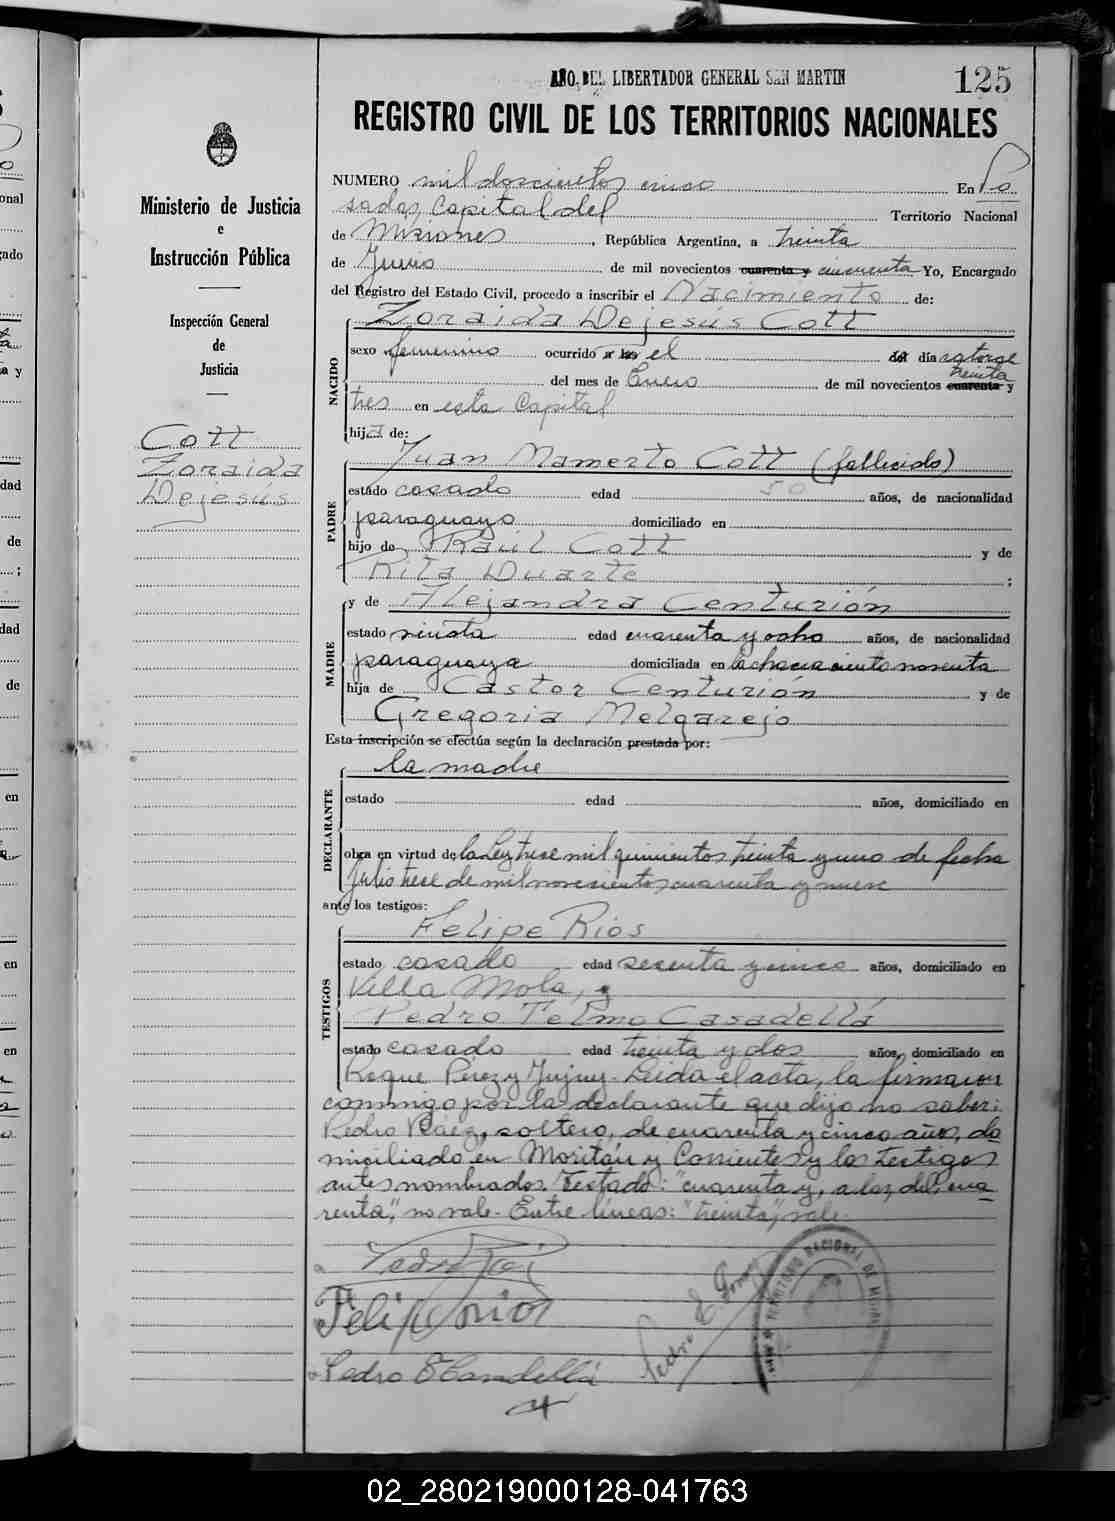 AÑO DEL LIBERTADOR GENERAL SAN MARTIN
125
REGISTRO CIVIL DE LOS TERRITORIOS NACIONALES
Ministerio de Justicia
e
Instrucción Pública
Inspección General
de
Justicia
Cott
Zoraida
Dejesús
NUMERO mil doscientos cinco En Po
sadas, Capital del Territorio Nacional
de Misiones, República Argentina, a treinta
de Junio de mil novecientos cuarenta y cincuenta Yo, Encargado
del Registro del Estado Civil, procedo a inscribir el Nacimiento de:
NACIDO
Zoraida Dejesús Cott
sexo femenino ocurrido a las el del día catorce
treinta
del mes de Enero de mil novecientos cuarenta y
tres en esta Capital
hija de:
PADRE
Juan Mamerto Cott (fallecido)
estado casado edad 50 años, de nacionalidad
paraguayo domiciliado en
hijo de Raúl Cott y de
Rita Duarte ;
MADRE
y de Alejandra Centurión
estado viuda edad cuarenta y ocho años, de nacionalidad
paraguaya domiciliada en la chacra ciento noventa
hija de Castor Centurión y de
Gregoria Melgarejo
Esta inscripción se efectúa según la declaración prestada por:
DECLARANTE
la madre
estado edad años, domiciliado en
obra en virtud de la Ley trece mil quinientos treinta y uno de fecha
Julio trece de mil novecientos cuarenta y nueve
ante los testigos:
TESTIGOS
Felipe Rios
estado casado edad sesenta y cinco años, domiciliado en
Villa Mola, y
Pedro Telmo Casadellá
estado casado edad treinta y dos años, domiciliado en
Roque Perez y Jujuy. Leida el acta, la firmaron
conmigo por la declarante que dijo no saber:
Pedro Páez, soltero, de cuarenta y cinco años, do
miciliado en Moritán y Corrientes y los testigos
antes nombrados. Testado: "cuarenta y, a las, del, cua
renta", no vale. Entre lineas: "treinta", vale.
Felipe rios
Pedro T Casadellá
Pedro
TERRITORIO NACIONAL DE
02_280219000128-041763